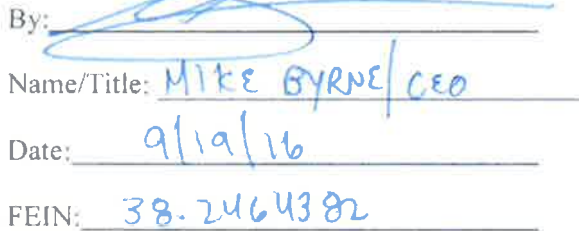 By:
Name/Title: MIKE BYRNE/CEO
Date: 9/19/16
FEIN: 38-2464382